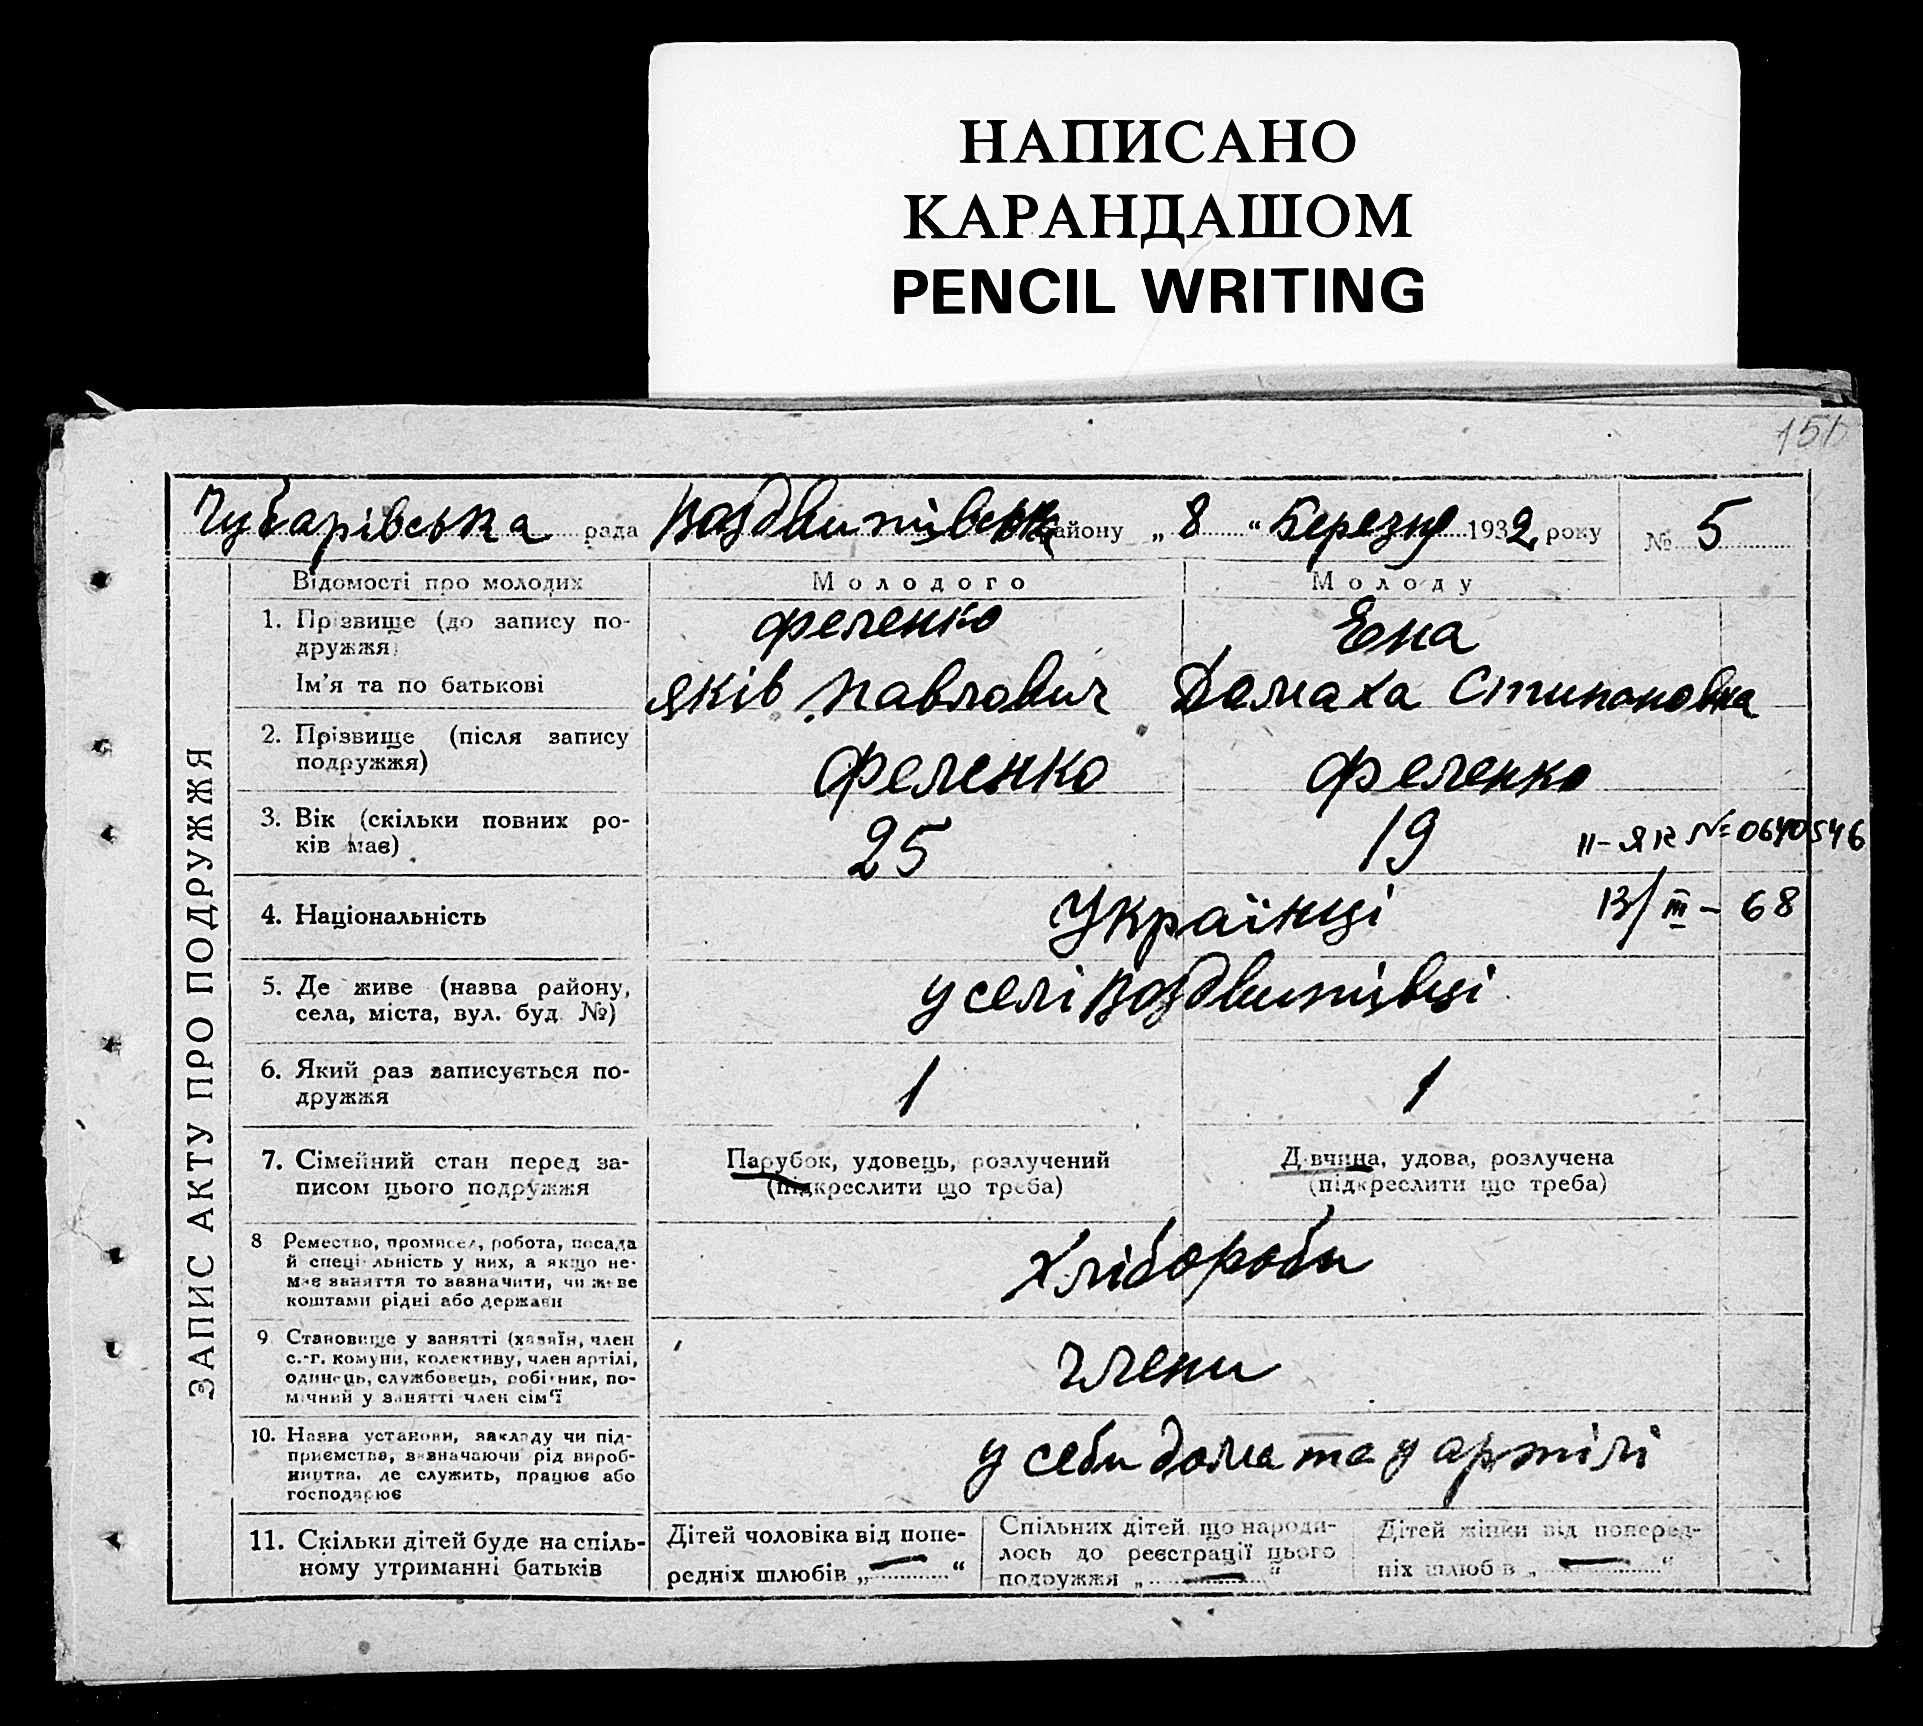 НАПИСАНО
КАРАНДАШОМ
PENCIL WRITING
Чубарівська рада Воздвижівськ району „ 8 “ Березня 1932 року № 5
ЗАПИС АКТУ ПРО ПОДРУЖЖЯ
Відомості про молодих Молодого Молоду
1. Прізвище (до запису по-
дружжя)
Феленко
Ім’я та по батькові
Яків Павлович Домаха Стипановка
2. Прізвище (після запису
подружжя)
Феленко Феленко
3. Вік (скільки повних ро-
ків має)
25 19
II-ЯК № 0640546
4. Національність
Українці
13/III-68
5. Де живе (назва району,
села, міста, вул. буд. №)
у селі Воздвижівці
6. Який раз записується по-
дружжя
1 1
7. Сімейний стан перед за-
писом цього подружжя
Парубок, удовець, розлучений
(підкреслити що треба)
Дівчина, удова, розлучена
(підкреслити що треба)
8 Ремество, промисел, робота, посада
й спеціяльність у них, а якщо не-
має заняття то зазначити, чи живе
коштами рідні або держави
Хлібороби
9 Становище у занятті (хазяїн, член
с.-г. комуни, колективу, член артілі,
одинець, службовець, робітник, по-
мічний у занятті член сім’ї
члени
10. Назва установи, закладу чи під-
приємства, визначаючи рід вироб-
ництва, де служить, працює або
господарює
у себи дома та у артілі
11. Скільки дітей буде на спіль-
ному утриманні батьків
Дітей чоловіка від попе-
редніх шлюбів „ — “
Спільних дітей, що народи-
лось до реєстрації цього
подружжя „ — “
Дітей жінки від поперед-
ніх шлюбів „ — “